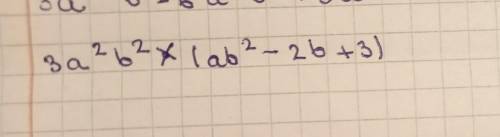 3a²b² × (ab² - 2b + 3)